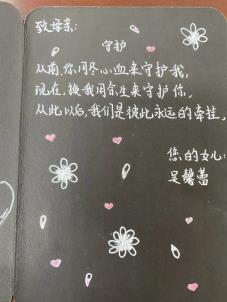 致母亲:
守护
从前,你用尽心血来守护我,
现在,换我用余生来守护你,
从此以后,我们是彼此永远的牵挂。
您的女儿:
吴馨蕾